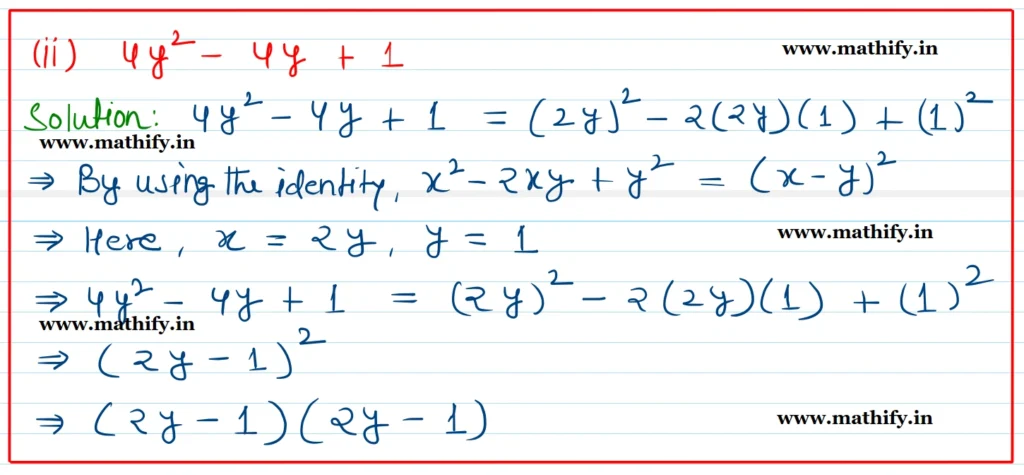 (ii) 4y² - 4y + 1 www.mathify.in
Solution: 4y² - 4y + 1 = (2y)² - 2(2y)(1) + (1)²
www.mathify.in
⇒ By using the identity, x² - 2xy + y² = (x - y)²
⇒ Here, x = 2y, y = 1 www.mathify.in
⇒ 4y² - 4y + 1 = (2y)² - 2(2y)(1) + (1)²
www.mathify.in
⇒ (2y - 1)²
⇒ (2y - 1)(2y - 1) www.mathify.in